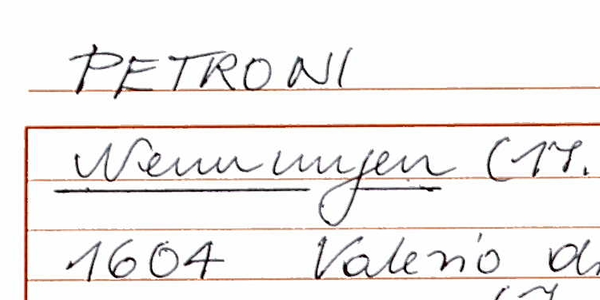 PETRONI
Nennungen (17.
1604 Valerio di